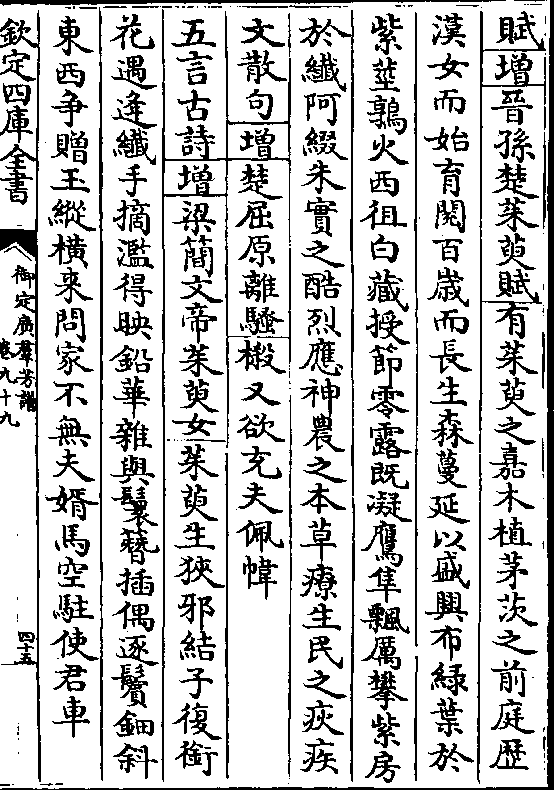 賦增晉孫楚茱萸賦有茱萸之嘉木植茅茨之前庭歴
漢女而始育閱百歲而長生森蔓延以盛興布綠葉於
紫莖鶉火西徂白藏授節零露既凝鷹隼飄厲攀紫房
於纖柯綴朱實之酷烈應神農之本草療生民之疾疾
文散句增楚屈原離騷樧又欲充夫佩幃
五言古詩增梁簡文帝茱萸女茱萸生狹邪結子復銜
花遇逢纖手摘濫得映鉛華雜與鬟簪插偶逐鬢鈿斜
東西爭贈玉縱橫來問家不無夫婿馬空駐使君車
欽定四庫全書
御定廣羣芳譜
卷九十九
四十五